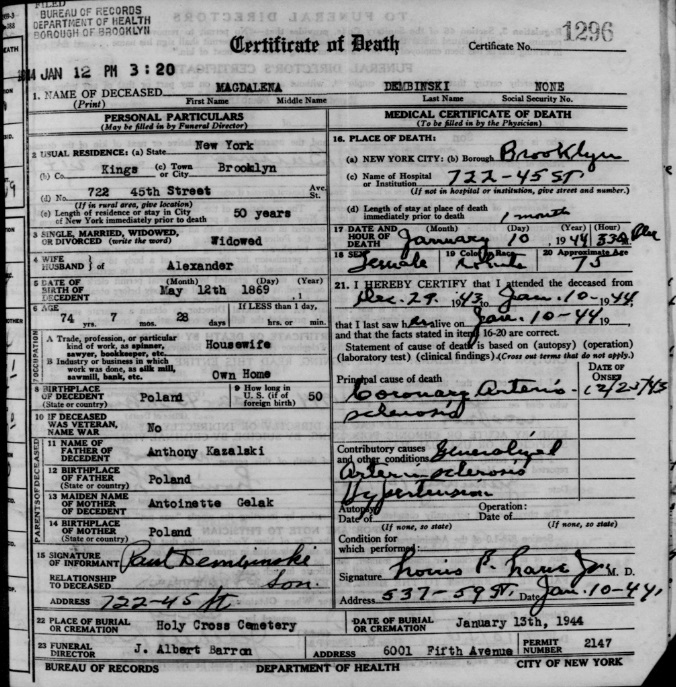 BUREAU OF RECORDS
DEPARTMENT OF HEALTH
BOROUGH OF BROOKLYN
Certificate of Death
Certificate No. 1296
JAN 12 PM 3:20
1. NAME OF DECEASED MAGDALENA DEMBINSKI NONE
(Print) First Name Middle Name Last Name Social Security No.
PERSONAL PARTICULARS
(May be filled in by Funeral Director)
2 USUAL RESIDENCE: (a) State New York
(b) Co. Kings (c) Town or City Brooklyn
(d) No. 722 45th Street Ave. St.
(If in rural area, give location)
(e) Length of residence or stay in City of New York immediately prior to death 50 years
3 SINGLE, MARRIED, WIDOWED, OR DIVORCED (write the word) Widowed
4 WIFE HUSBAND } of Alexander
5 DATE OF BIRTH OF DECEDENT (Month) (Day) (Year) May 12th 1869
6 AGE 74 yrs. 7 mos. 28 days If LESS than 1 day, hrs. or min.
7 OCCUPATION
A Trade, profession, or particular kind of work, as spinner, sawyer, bookkeeper, etc. Housewife
B Industry or business in which work was done, as silk mill, sawmill, bank, etc. Own Home
8 BIRTHPLACE OF DECEDENT (State or country) Poland
9 How long in U. S. (if of foreign birth) 50
10 IF DECEASED WAS VETERAN, NAME WAR No
PARENTS OF DECEASED
11 NAME OF FATHER OF DECEDENT Anthony Kazalski
12 BIRTHPLACE OF FATHER (State or country) Poland
13 MAIDEN NAME OF MOTHER OF DECEDENT Antoinette Gelak
14 BIRTHPLACE OF MOTHER (State or country) Poland
15 SIGNATURE OF INFORMANT Paul Dembinski
RELATIONSHIP TO DECEASED Son.
ADDRESS 722-45 St.
MEDICAL CERTIFICATE OF DEATH
(To be filled in by the Physician)
16. PLACE OF DEATH:
(a) NEW YORK CITY: (b) Borough Brooklyn
(c) Name of Hospital or Institution 722-45 ST
(If not in hospital or institution, give street and number.)
(d) Length of stay at place of death immediately prior to death 1 month
17 DATE AND HOUR OF DEATH (Month) (Day) (Year) (Hour) January 10, 1944
18 SEX Female 19 Color or Race White 20 Approximate Age 75
21. I HEREBY CERTIFY that I attended the deceased from
Dec. 29. 1943 to Jan. 10-1944,
that I last saw her alive on Jan. 10-44 19
and that the facts stated in item 16-20 are correct.
Statement of cause of death is based on (autopsy) (operation)
(laboratory test) (clinical findings). (Cross out terms that do not apply.)
Principal cause of death DATE OF ONSET
Coronary Arterio-
sclerosis
Contributory causes and other conditions Generalized
Arteriosclerosis
Hypertension
Autopsy Operation:
Date of Date of
(If none, so state) (If none, so state)
Condition for which performed:
Signature Louis M. D.
Address 537-59 ST. Date Jan. 10-44
22 PLACE OF BURIAL OR CREMATION Holy Cross Cemetery DATE OF BURIAL OR CREMATION January 13th, 1944
23 FUNERAL DIRECTOR J. Albert Barron ADDRESS 6001 Fifth Avenue PERMIT NUMBER 2147
BUREAU OF RECORDS DEPARTMENT OF HEALTH CITY OF NEW YORK